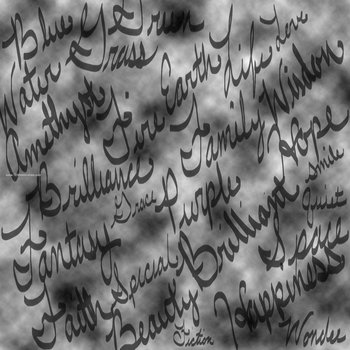 Blue Green
Grass
Water
Earth Life Love
Amethyst Fire Family Wisdom
Hope
Brilliance
Grace Purple
Smile
Quiet
Fantasy
Special Brilliant Space
Faith
Beauty Happiness
Fiction
Wonder